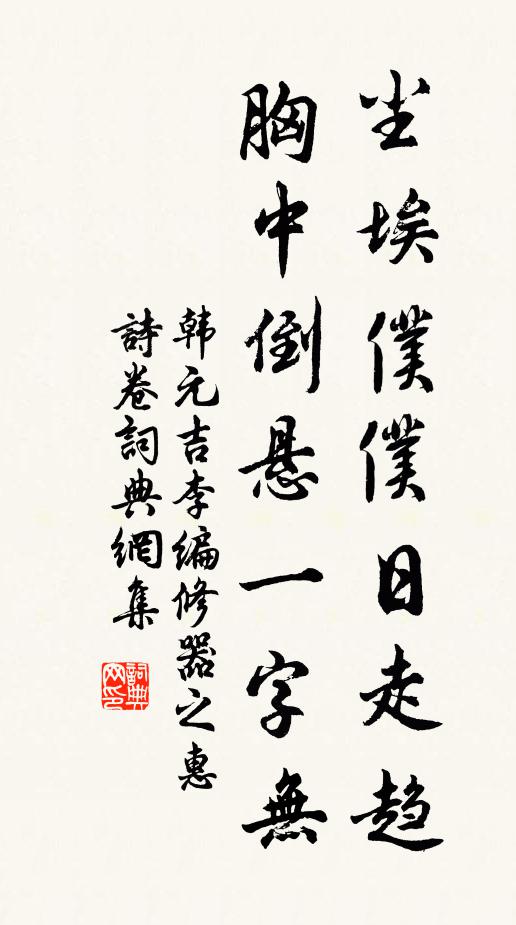 尘埃僕僕日走趋
胸中倒悬一字無
韩元吉李编修器之惠
詩卷詞典網集
詞典网印